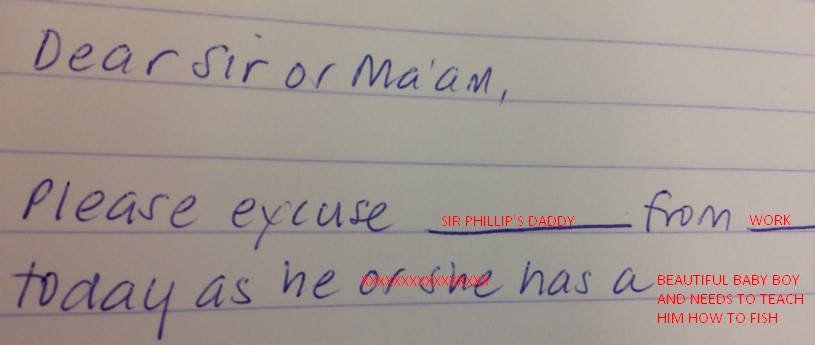 Dear Sir or Ma'am,
Please excuse SIR PHILLIP'S DADDY from WORK
today as he or she has a BEAUTIFUL BABY BOY
AND NEEDS TO TEACH
HIM HOW TO FISH